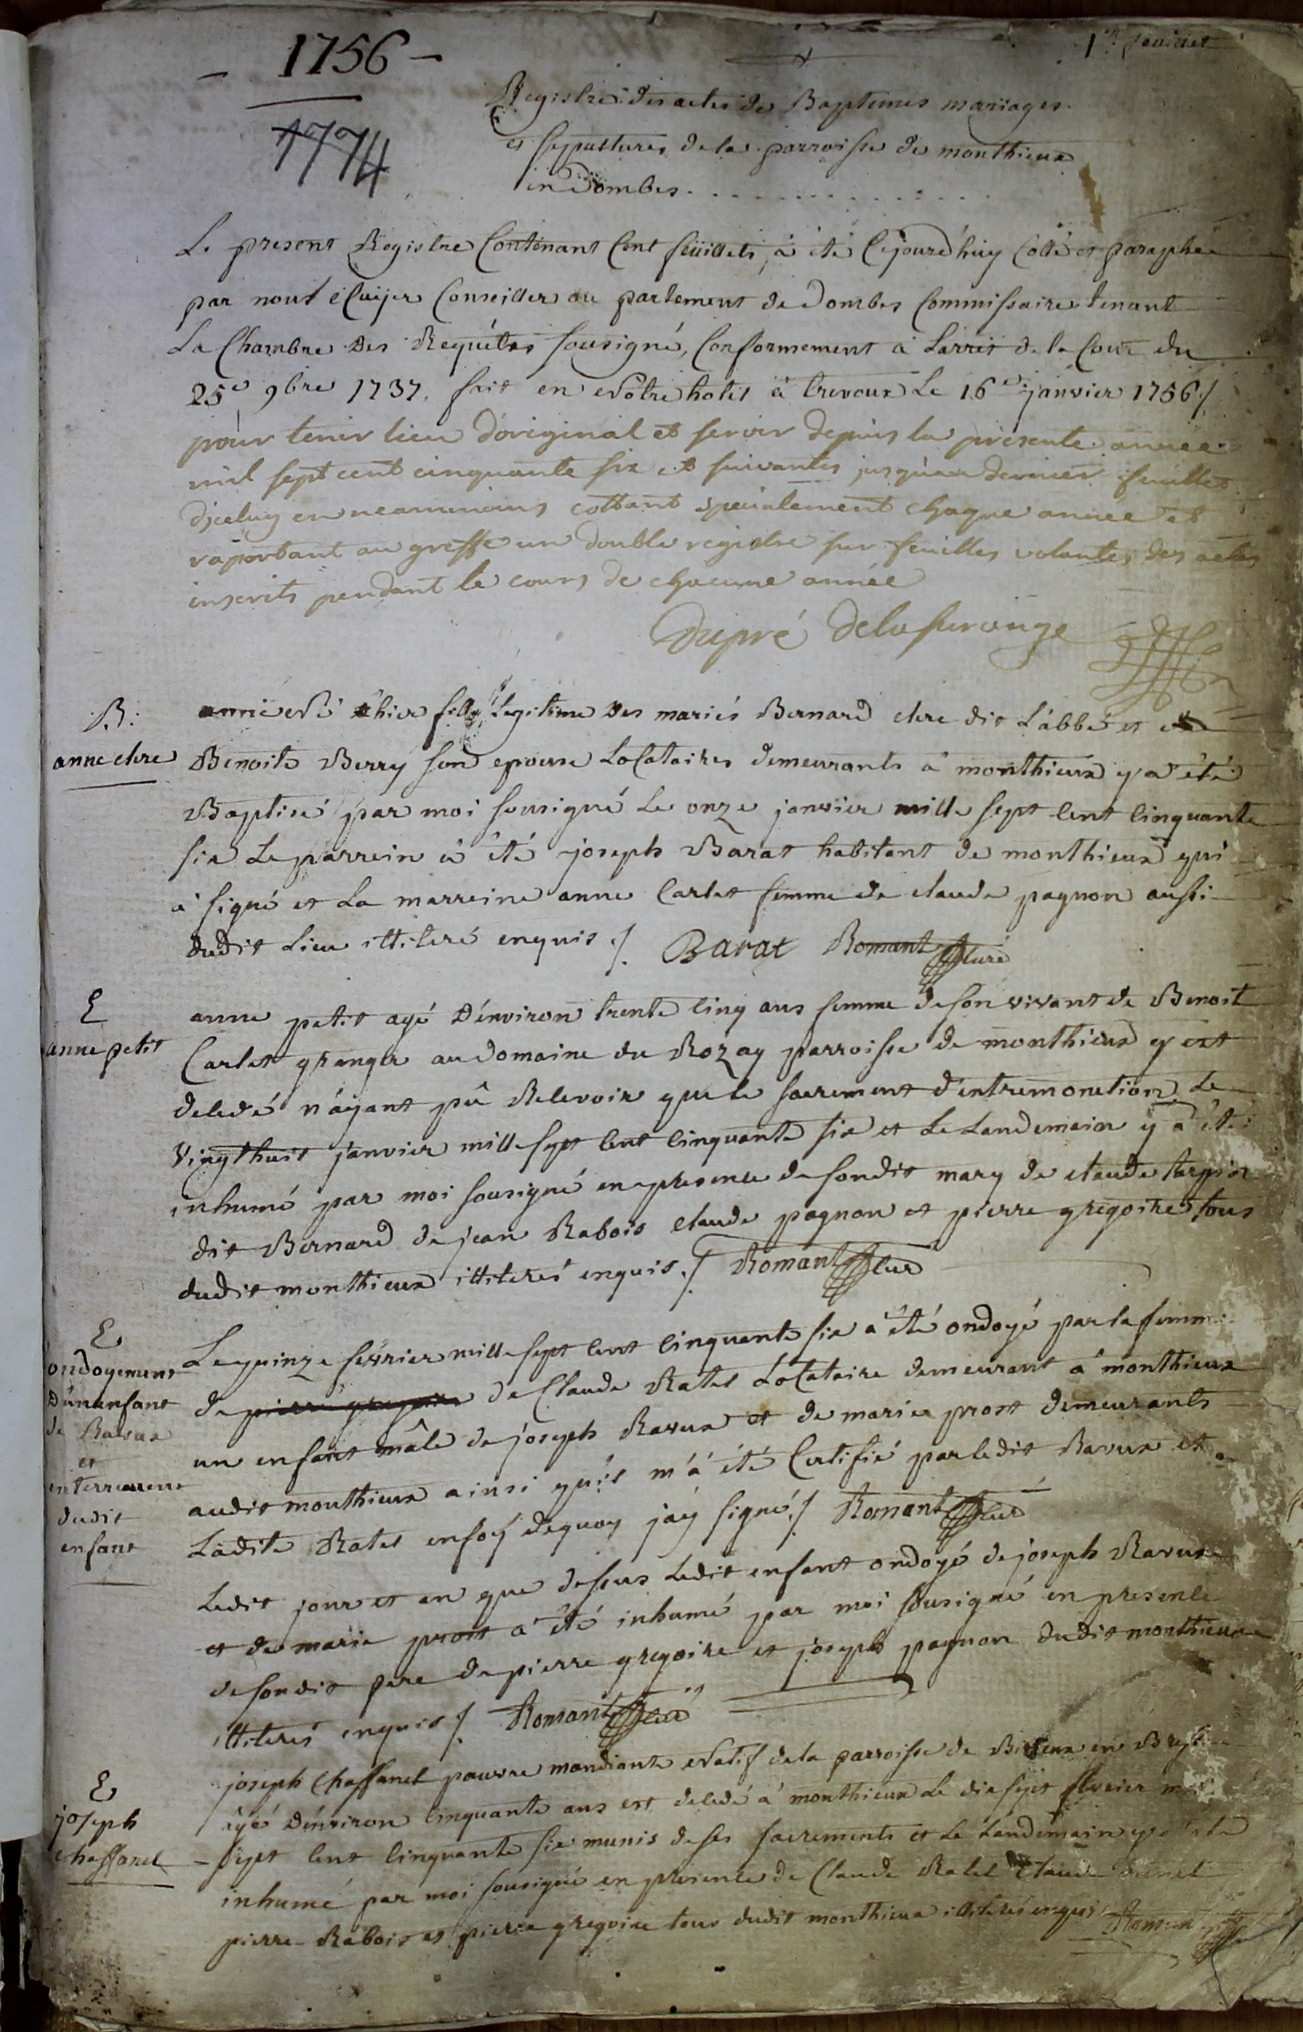 - 1756 -
1774
1er feuillet
Registre des actes de Baptemes mariages
et sepultures de la parroisse de monthieux
en Dombes
Le present Registre Contenant Cent feüillets, à été Cejourd'huy Cotté et paraphée
par nous Ecuÿer Conseiller au parlement de Dombes Commissaire tenant
La Chambre Des Requétes sousigné, Conformement à Larrét de la Cour du
25e 9bre 1737. fait en nôtre hotel à trevoux Le 16e janvier 1756 /
pour tenir lieu d'original et servir depuis la presente année
mil sept cent cinquante six et suivantes jusqu'au dernier feuillet
diceluy en neammoins cottant specialement chaque année et
raportant au greffe un double registre sur feuilles volantes des actes
inscrits pendant le cours de chacune année
Dupré
B:
anne clere
anne née hier fille Legitime des mariés Bernard clere dit L'abbé et de
Benoite Berry son epouse Locataires demeurants à monthieux y a été
Baptisé par moi sousigné Le onze janvier mille sept cent cinquante
six Le parrein à été joseph Barat habitant de monthieux qui
à signé et La marreine anne Carlet femme de claude pagnon aussi
dudit Lieu illiteré enquis ./. Barat Romant Curé
E
anne petit
anne petit agé d'environ trente cinq ans femme de son vivant de Benoit
Carlet granger au domaine du Rozay parroisse de monthieux y est
decedé n'ayant pû Recevoir que le sacrement d'extremonction Le
vingthuit janvier mille sept cent cinquante six et Le Landemain y a été
inhumé par moi sousigné en presence de sondit mary de claude
dit Bernard de jean Rabois claude pagnon et pierre gregoire tous
dudit monthieux illiterés enquis ./. Romant Curé
E
ondoyement
D'un enfant
de Ravux
et
enterrement
dudit
enfant
Le quinze fevrier mille sept cent cinquante six a été ondoyé par la femme
de pierre gregoire de Claude Ratel Locataire demeurant à monthieux
un enfant mâle de joseph Ravux et de marie prost demeurants
audit monthieux ainsi qu'il m'a été Certifié par ledit Ravux et
Ladite Ratel enfoÿ dequoy jaÿ signé ./. Romant Curé
Ledit jour et an que dessus Ledit enfant ondoyé de joseph Ravux
et de marie prost a été inhumé par moi sousigné en presence
de sondit pere de pierre gregoire et joseph pagnon dudit monthieux
illiterés enquis /. Romant Curé
E
joseph
chaffanel
joseph Chaffanel pauvre mandiant natif de la parroisse de en
âgé d'environ cinquante ans est decedé à monthieux Le dix sept fevrier mille
sept cent cinquante six munis de ses sacrements et Le Landemain y a été
inhumé par moi sousigné en presence de Claude Ratel Claude
pierre Rabois et pierre gregoire tous dudit monthieux illiterés enquis Romant